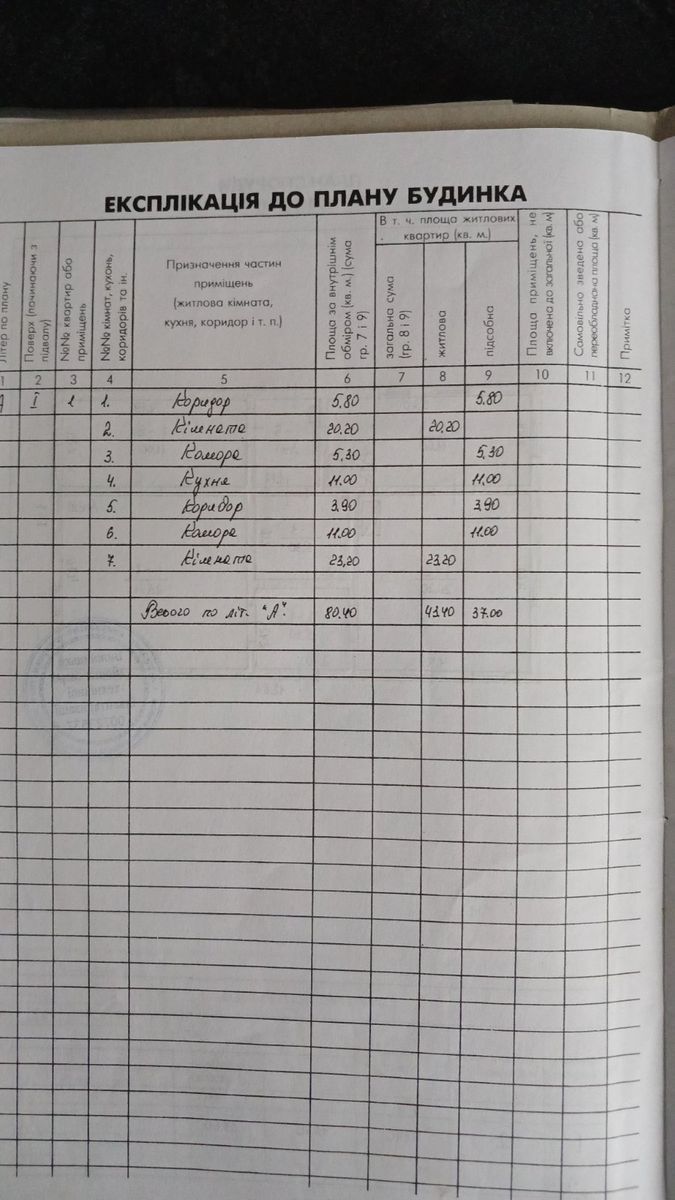 ЕКСПЛІКАЦІЯ ДО ПЛАНУ БУДИНКА
Літер по плану
Поверх (починаючи з підвалу)
№№ квартир або приміщень
№№ кімнат, кухонь, коридорів та ін.
Призначення частин
приміщень
(житлова кімната,
кухня, коридор і т. п.)
Площа за внутрішнім обміром (кв. м.) (сума гр. 7 і 9)
В т. ч. площа житлових
квартир (кв. м.)
загальна сума (гр. 8 і 9)
житлова
підсобна
Площа приміщень, не включена до загальної (кв. м)
Самовільно зведена або переобладнана площа (кв. м)
Примітка
1 2 3 4 5 6 7 8 9 10 11 12
А I 1 1. Коридор 5,80 5,80
2. Кімната 20,20 20,20
3. Комора 5,30 5,30
4. Кухня 11.00 11.00
5. Коридор 3,90 3,90
6. Комора 11.00 11.00
7. Кімната 23,20 23,20
Всього по літ. "А". 80.40 43.40 37.00